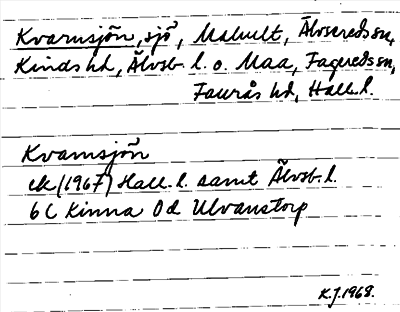 Kvarnsjön, sjö, Malhult, Älvsereds sn,
Kinds hd, Älvsb. l. o. Maa, Fagereds sn,
Faurås hd, Hall. l.
Kvarnsjön
ek (1967) Hall. l. samt Älvsb. l.
6C Kinna 0d Ulvanstorp
K.J. 1968.